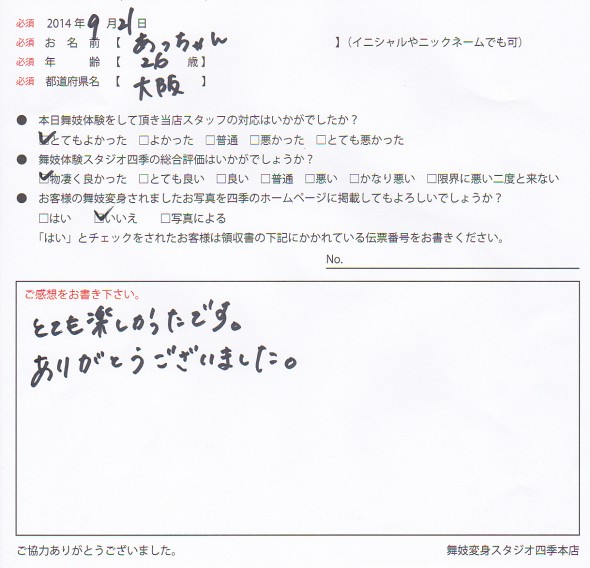 必須 2014年9月21日
必須 お名前【 あっちゃん 】(イニシャルやニックネームでも可)
必須 年齢【 26 歳】
必須 都道府県名【 大阪 】
● 本日舞妓体験をして頂き当店スタッフの対応はいかがでしたか?
☑とてもよかった □よかった □普通 □悪かった □とても悪かった
● 舞妓体験スタジオ四季の総合評価はいかがでしょうか?
☑物凄く良かった □とても良い □良い □普通 □悪い □かなり悪い □限界に悪い二度と来ない
● お客様の舞妓変身されましたお写真を四季のホームページに掲載してもよろしいでしょうか?
□はい ☑いいえ □写真による
「はい」とチェックをされたお客様は領収書の下記にかかれている伝票番号をお書きください。
No.
ご感想をお書き下さい。
とても楽しかったです。
ありがとうございました。
ご協力ありがとうございました。 舞妓変身スタジオ四季本店